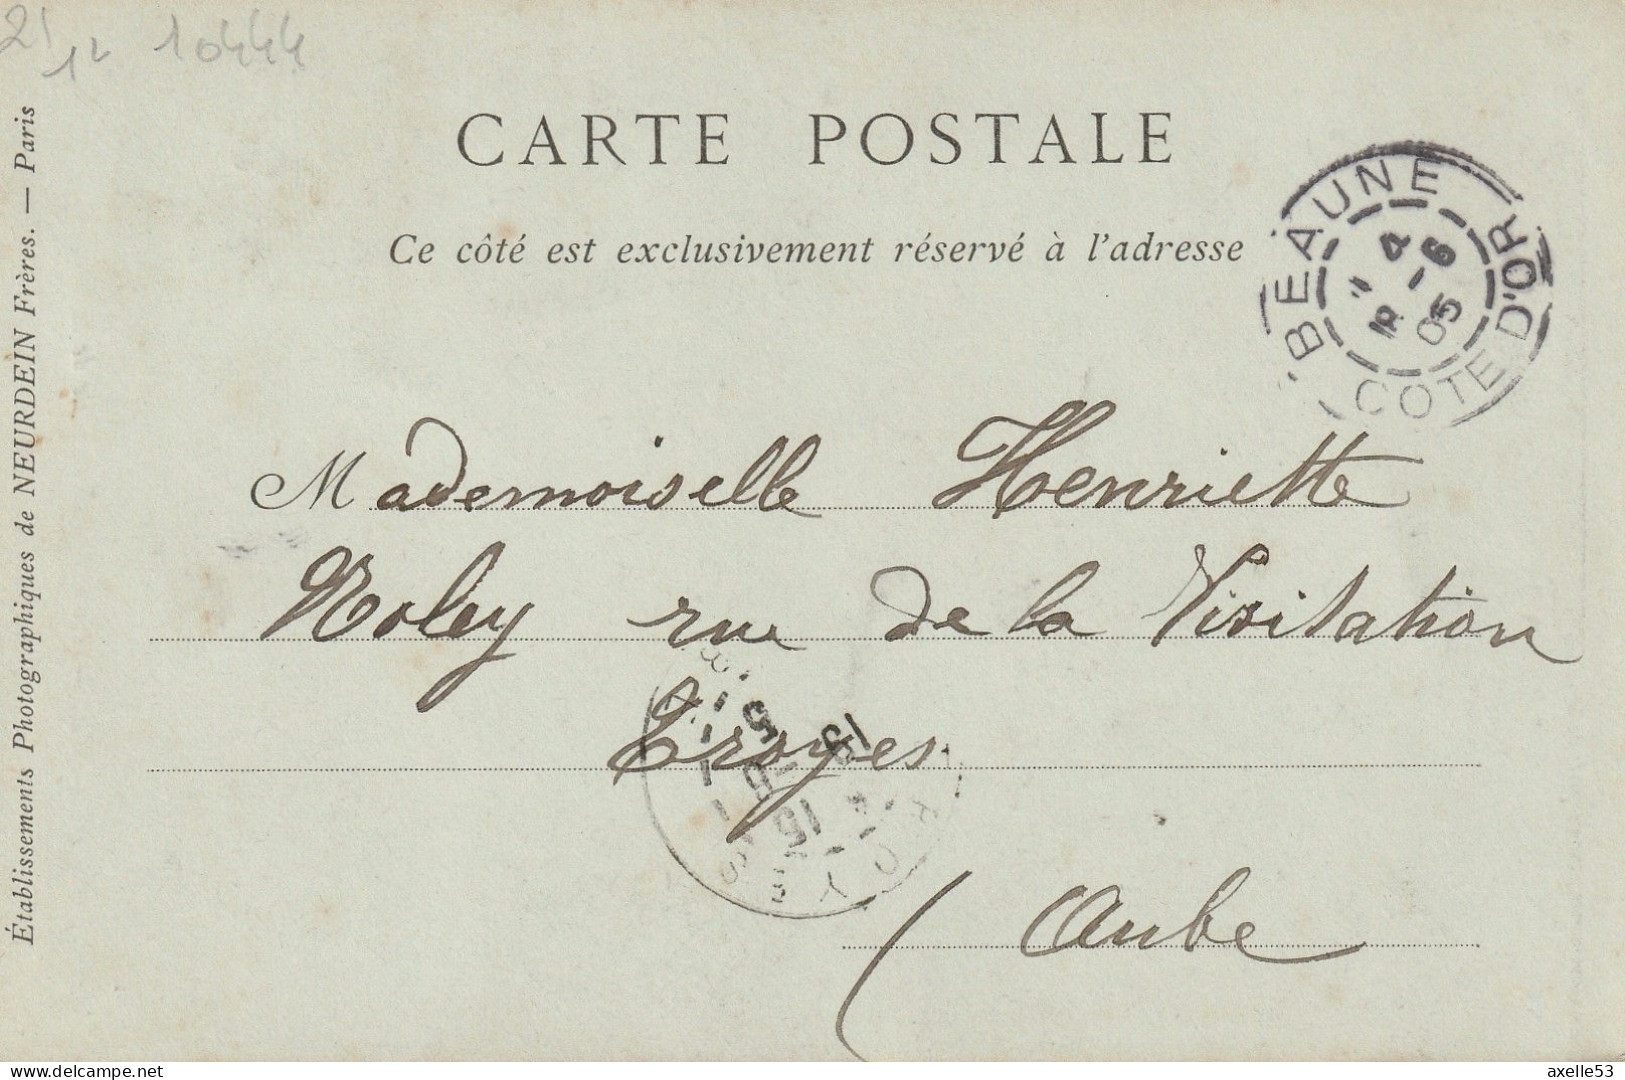 21
12 10444
CARTE POSTALE
Ce côté est exclusivement réservé à l'adresse
BEAUNE
4
11 -6
05
COTE D'OR
Mademoiselle Henriette
Noley rue de la Visitation
Troyes
(Aube
TROYES
Établissements Photographiques de NEURDEIN Frères. — Paris
Delcampe.net
axelle53